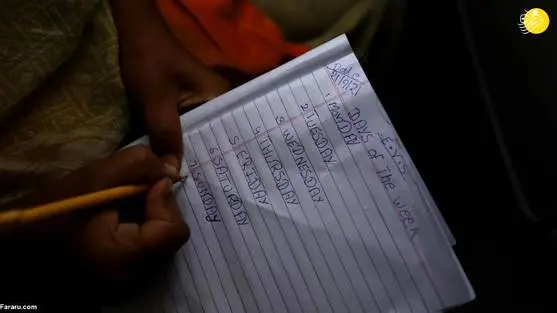 E.V.S
DAYS of The Week
1 MONDAY
2 TUESDAY
3 WEDNESDAY
4 THURSDAY
5 FRIDAY
6 SATURDAY
7 SUNDAY
Fararu.com